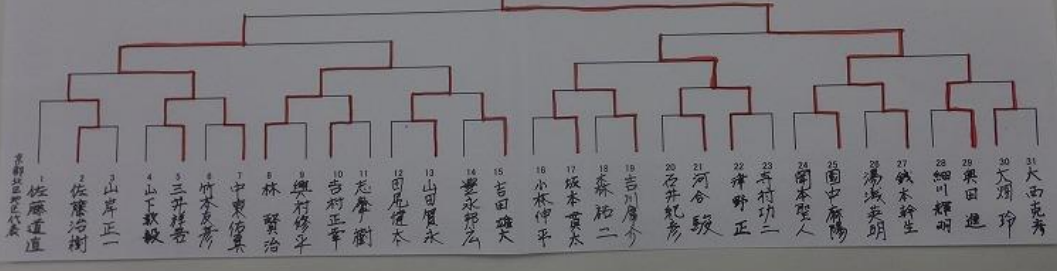 京都北区地区代表
1 佐藤道直
2 佐藤治樹
3 山岸正一
4 山下歎毅
5 三井祥吾
6 竹本友彦
7 中東佑真
8 林 賢治
9 奥村修平
10 吉村正幸
11 志摩樹
12 田尾健太
13 山田賢永
14 豊永邦広
15 吉田雄大
16 小林伸平
17 坂本貫太
18 森 祐二
19 吉川彦介
20 石井紀彦
21 河谷 駿
22 津野 正
23 寺村功二
24 岡本聖人
25 園中麻陽
26 湯浅英明
27 銭本幹生
28 細川輝明
29 奥田 進
30 大畑 玲
31 大西克彦